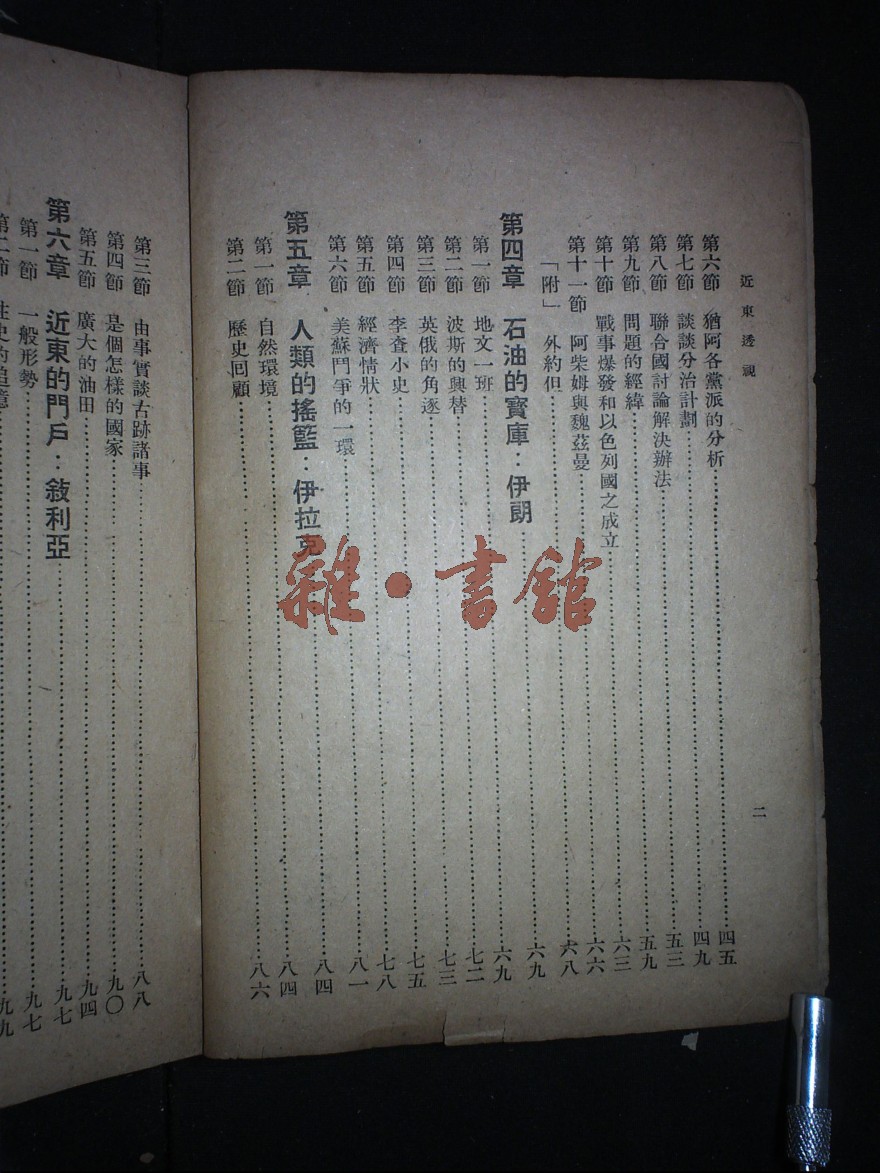 近東透視
二
第六節 猶阿各黨派的分析……四五
第七節 談談分治計劃……四九
第八節 聯合國討論解決辦法……五三
第九節 問題的經緯……五九
第十節 戰事爆發和以色列國之成立……六三
第十一節 阿柴姆與魏茲曼……六六
「附」 外約但……六八
第四章 石油的寶庫：伊朗……六九
第一節 地文一班……六九
第二節 波斯的興替……七二
第三節 英俄的角逐……七三
第四節 李查小史……七五
第五節 經濟情狀……七八
第六節 美蘇鬥爭的一環……八一
第五章 人類的搖籃：伊拉克……八四
第一節 自然環境……八四
第二節 歷史回顧……八六
第三節 由事實談古跡諸事……八八
第四節 是個怎樣的國家……九〇
第五節 廣大的油田……九四
第六章 近東的門戶：敘利亞……九七
第一節 一般形勢……九七
第二節 往史的追憶……九九
雜·書館